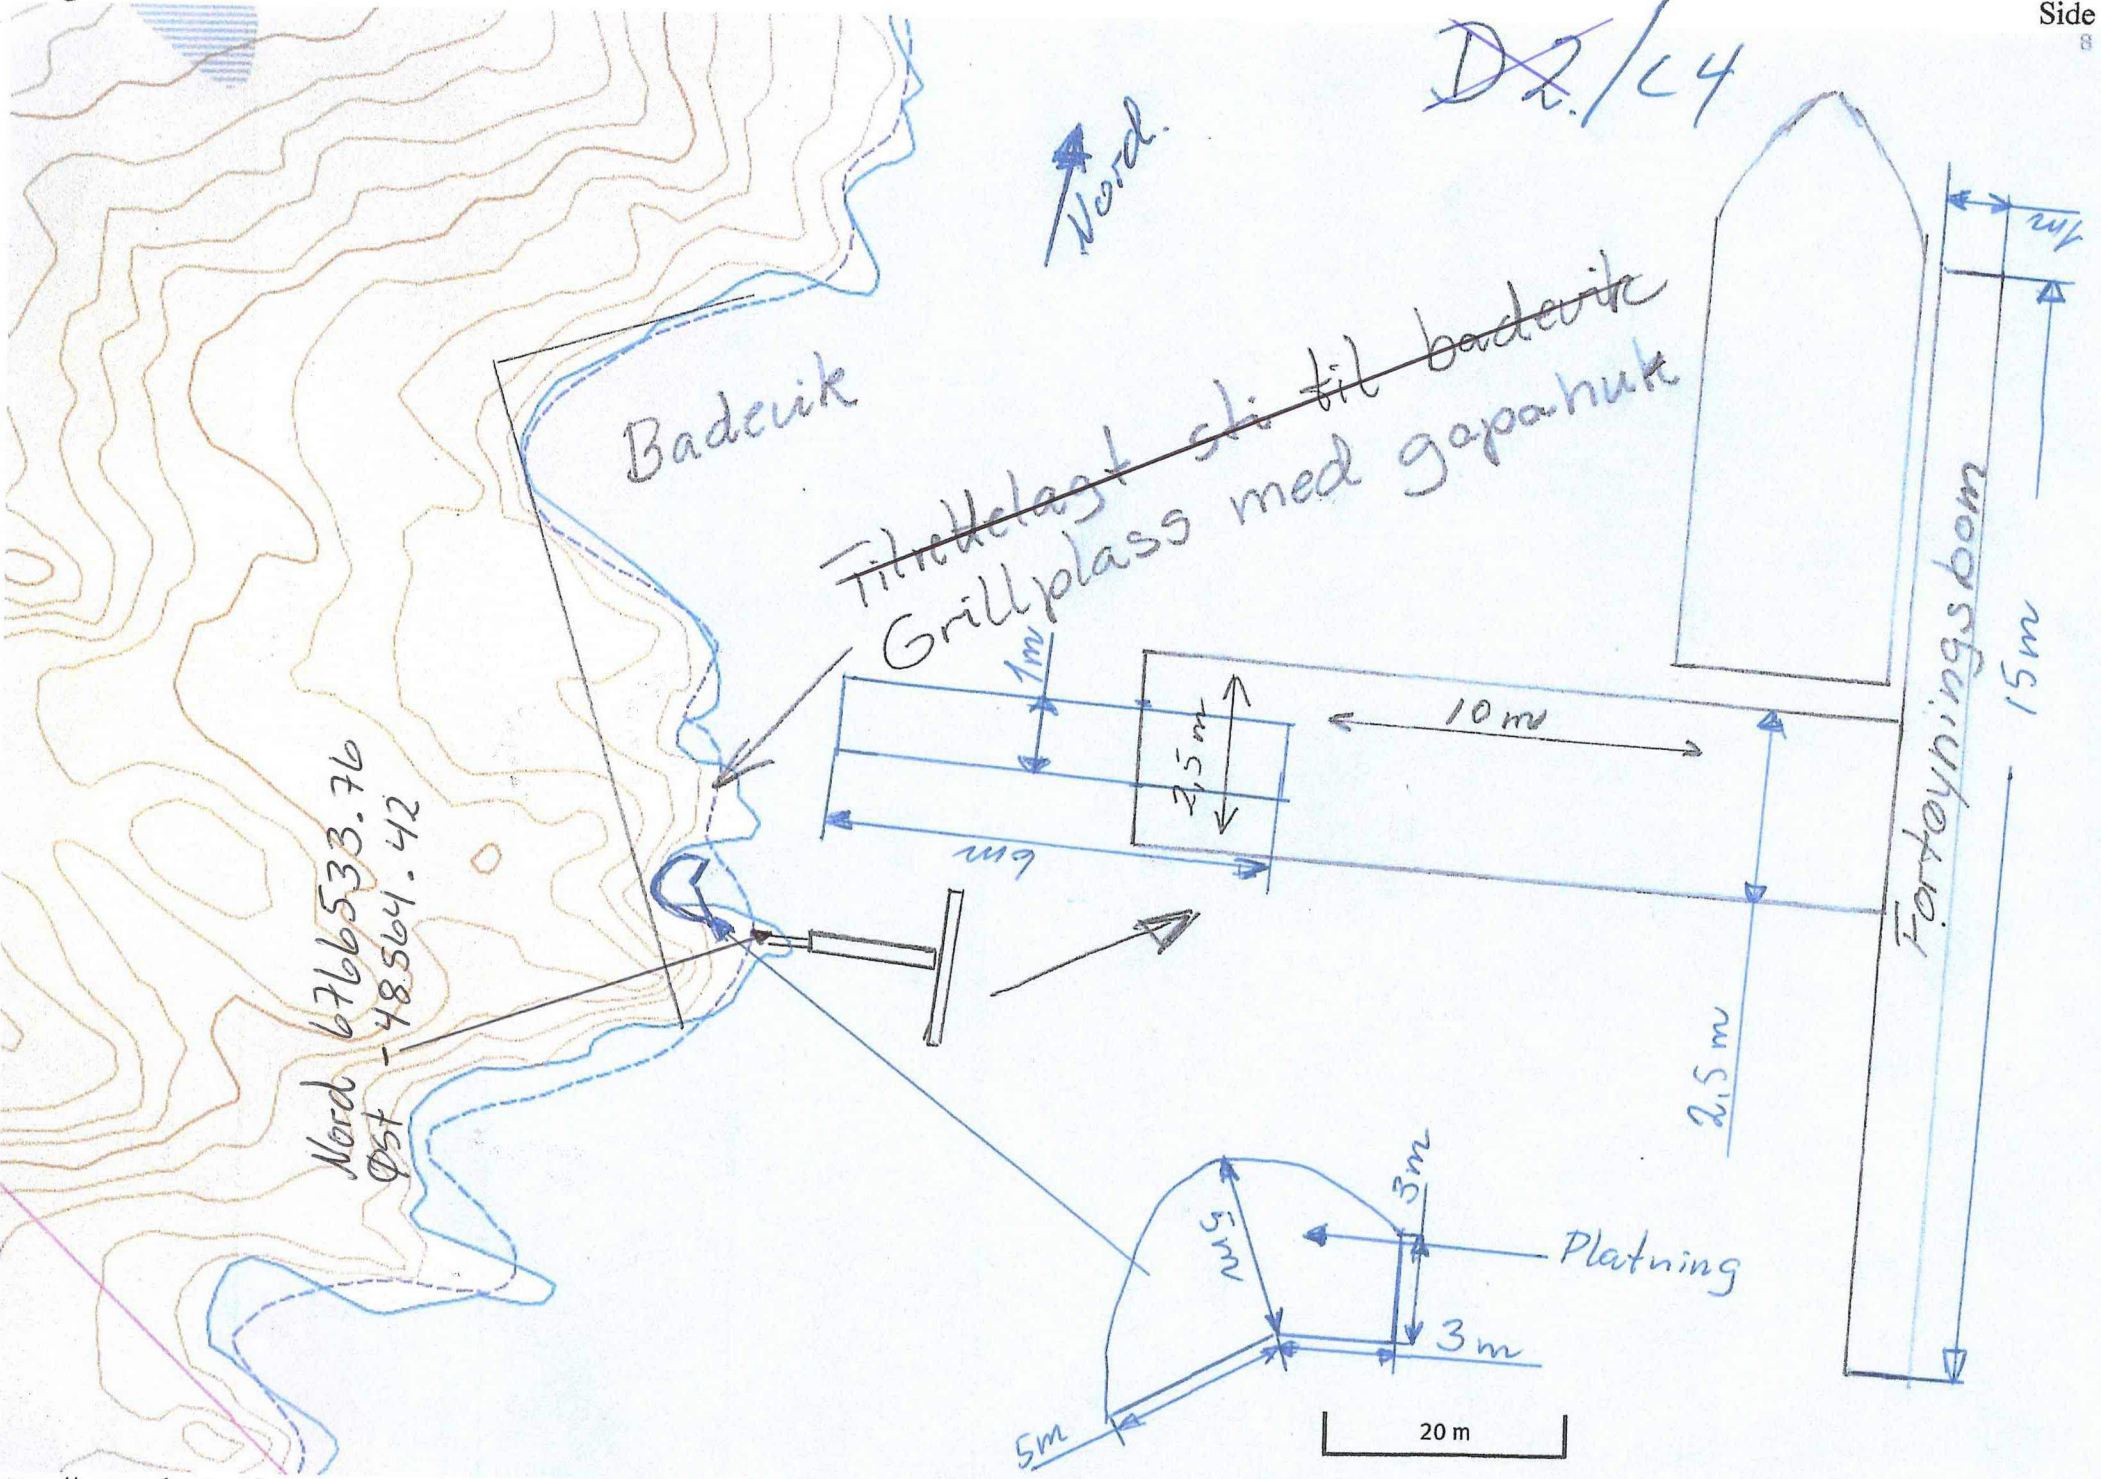 Side
8
D2./C4
Nord.
1m
Badevik
Tilrettelagt sti til badevik
Grillplass med gapahuk
1m
2,5 m
10 m
6m
Fortøyningsbom
15m
Nord 6766533.76
Øst -48564.42
2,5 m
3m
5m
Platning
3m
5m
20 m